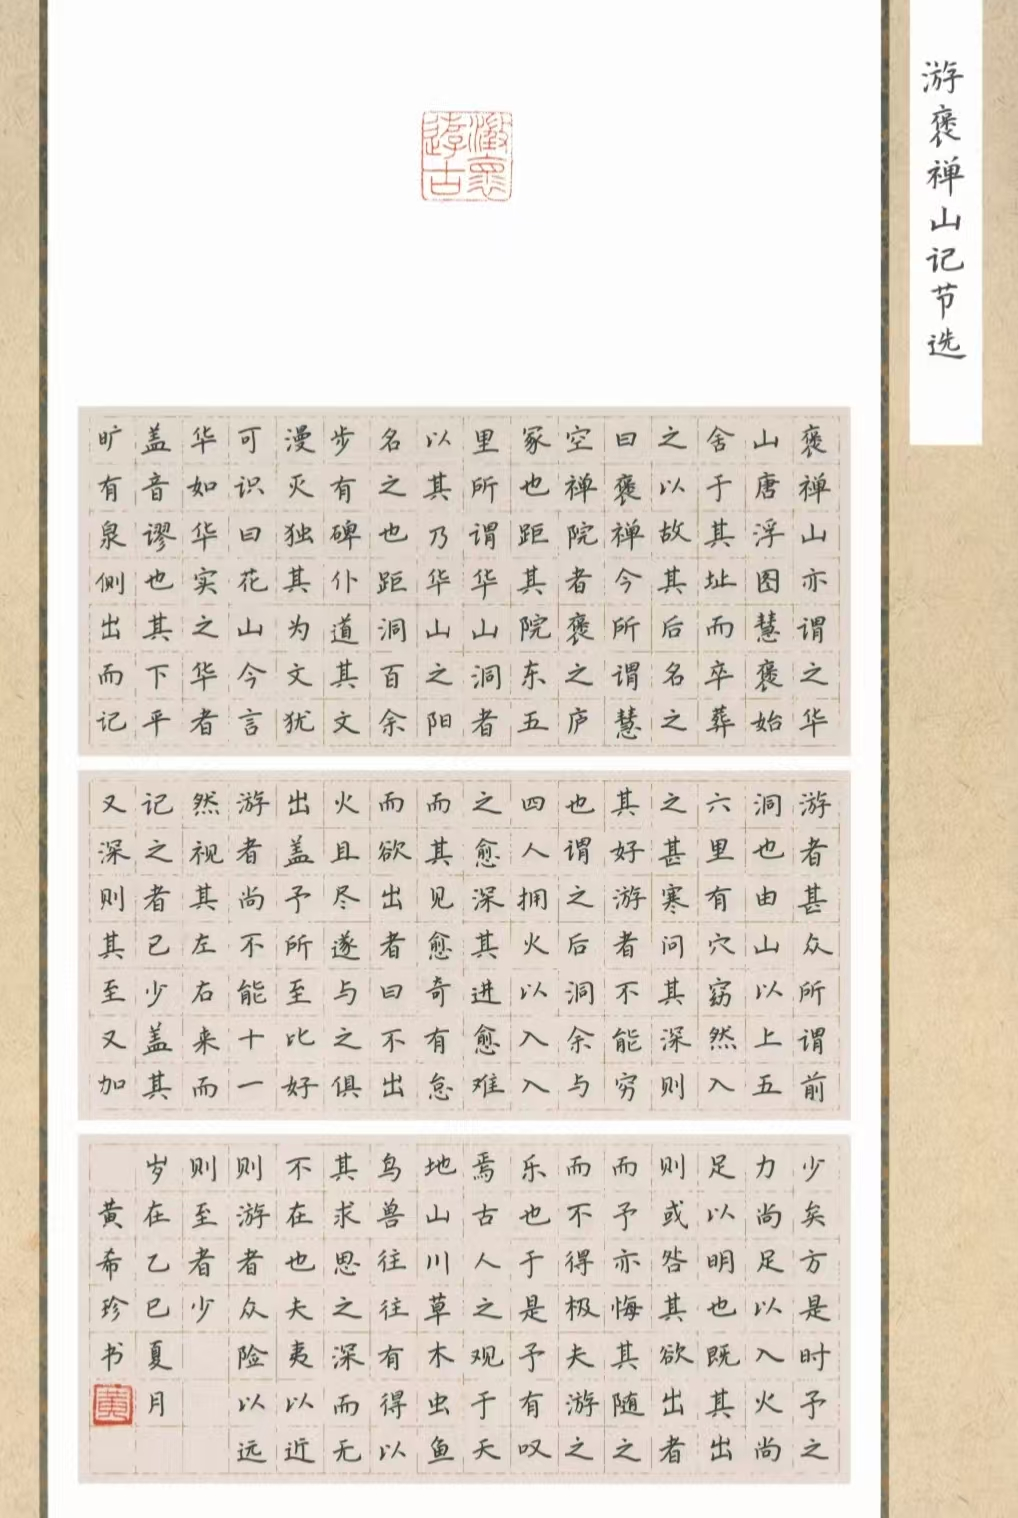 游褒禅山记节选
褒禅山亦谓之华
山唐浮图慧褒始
舍于其址而卒葬
之以故其后名之
曰褒禅今所谓慧
空禅院者褒之庐
冢也距其院东五
里所谓华山洞者
以其乃华山之阳
名之也距洞百余
步有碑仆道其文
漫灭独其为文犹
可识曰花山今言
华如华实之华者
盖音谬也其下平
旷有泉侧出而记
游者甚众所谓前
洞也由山以上五
六里有穴窈然入
之甚寒问其深则
其好游者不能穷
也谓之后洞余与
四人拥火以入入
之愈深其进愈难
而其见愈奇有怠
而欲出者曰不出
火且尽遂与之俱
出盖予所至比好
游者尚不能十一
然视其左右来而
记之者已少盖其
又深则其至又加
少矣方是时予之
力尚足以入火尚
足以明也既其出
则或咎其欲出者
而予亦悔其随之
而不得极夫游之
乐也于是予有叹
焉古人之观于天
地山川草木虫鱼
鸟兽往往有得以
其求思之深而无
不在也夫夷以近
则游者众险以远
则至者少
岁在乙巳夏月
黄希珍书
黄